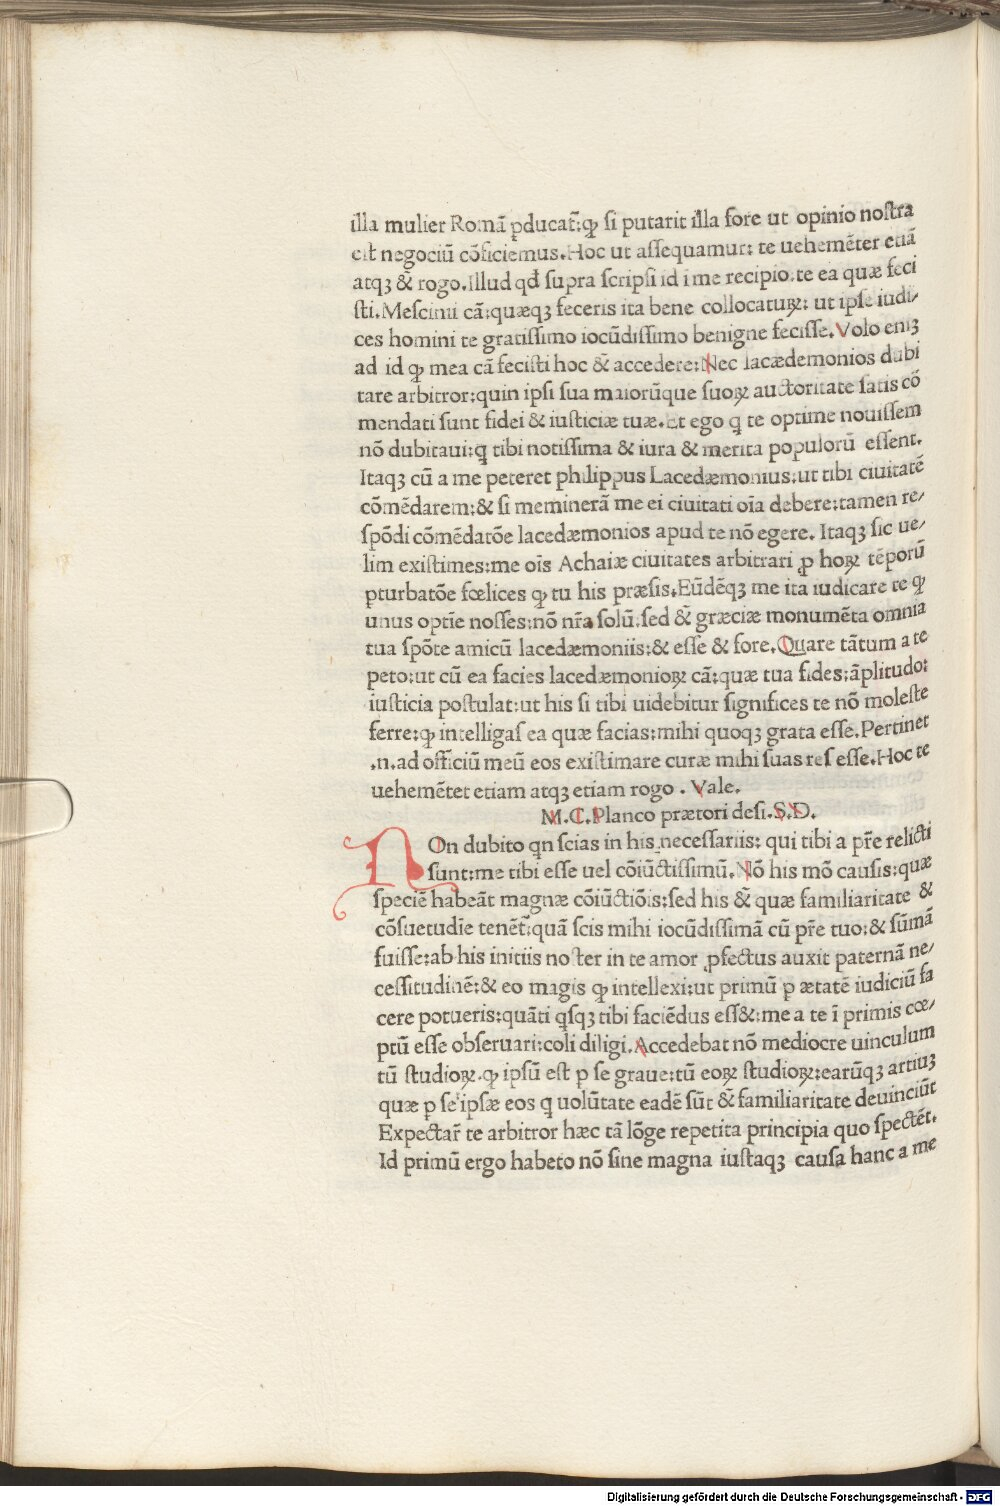 illa mulier Romã ꝓducat᷑:ꝙ ſi putarit illa fore ut opinio noſtra
eſt negociũ cõficiemus. Hoc ut aſſequamur: te uehemẽter etiã
atqꝫ & rogo. Illud qđ ſupra ſcripſi id ĩ me recipio. te ea quæ feci
ſti. Meſcinii cã: quæqꝫ feceris ita bene collocatuꝝ: ut ipſe iudi⸗
ces homini te gratiſſimo iocũdiſſimo benigne feciſſe. Volo eniꝫ
ad id ꝙ mea cã feciſti hoc & accedere: Nec lacædemonios dubi
tare arbitror: quin ipſi ſua maiorũque ſuoꝝ auctoritate ſatis cõ
mendati ſunt fidei & iuſticiæ tuæ. Et ego q̃ te optime nouiſſem
nõ dubitaui: q̃ tibi notiſſima & iura & merita populorũ eſſent.
Itaqꝫ cũ a me peteret philippus Lacedæmonius: ut tibi ciuitatẽ
cõmẽdarem: & ſi meminerã me ei ciuitati oĩa debere: tamen re⸗
ſpõdi cõmẽdatõe lacedæmonios apud te nõ egere. Itaqꝫ ſic ue⸗
lim exiſtimes: me oĩs Achaiæ ciuitates arbitrari ꝓ hoꝝ tẽporũ
pturbatõe fœlices ꝙ tu his præſis. Eũdẽqꝫ me ita iudicare te ꝙ
unus optĩe noſſes: nõ nr̃a ſolũ. ſed & græciæ monumẽta omnia
tua ſpõte amicũ lacedæmoniis: & eſſe & fore. Quare tãtum a te
peto: ut cũ ea facies lacedæmonioꝝ cã: quæ tua fides: ãplitudo:
iuſticia poſtulat: ut his ſi tibi uidebitur ſignifices te nõ moleſte
ferre: ꝙ intelligaſ ea quæ facias: mihi quoqꝫ grata eſſe. Pertinet
.n. ad offĩciũ meũ eos exiſtimare curæ mihi ſuas reſ eſſe. Hoc te
uehemẽtet etiam atqꝫ etiam rogo . Vale.
M. C. Planco prætori deſi. S. D.
NOn dubito qn̄ ſcias in his neceſſariis: qui tibi a pr̃e relicti
ſunt: me tibi eſſe uel cõiũctiſſimũ. Nõ his mõ cauſis: quæ
ſpeciẽ habeãt magnæ cõiũctiõis: ſed his & quæ familiaritate &
cõſuetudĩe tenẽt᷑: quã ſcis mihi iocũdiſſimã cũ pr̃e tuo: & ſũmã
fuiſſe: ab his initiis noſter in te amor ꝓfectus auxit paternã ne⸗
ceſſitudinẽ: & eo magis ꝙ intellexi: ut primũ p ætatẽ iudiciũ fa
cere potueris: quãti qſqꝫ tibi faciẽdus eſſ&: me a te ĩ primis cœ⸗
ptũ eſſe obſeruari: coli diligi. Accedebat nõ mediocre uinculum
tũ ſtudioꝝ. ꝙ ipſũ eſt p ſe graue: tũ eoꝝ ſtudioꝝ: earũqꝫ artiuꝫ
quæ p ſe ipſæ eos q uolũtate eadẽ ſũt & familiaritate deuinciũt
Expectar̃ te arbitror hæc tã lõge repetita principia quo ſpectẽt.
Id primũ ergo habeto nõ ſine magna iuſtaqꝫ cauſa hanc a me
Digitalisierung gefördert durch die Deutsche Forschungsgemeinschaft - DFG